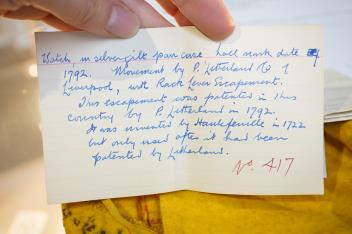 Watch, in silver gilt pair case hall mark date of
1792. Movement by P. Litherland Co of
Liverpool, with Rack Lever Escapement.
This escapement was patented in this
country by P. Litherland in 1792.
It was invented by Hautefeuille in 1722
but only used after it had been
patented by Litherland.
No. 417